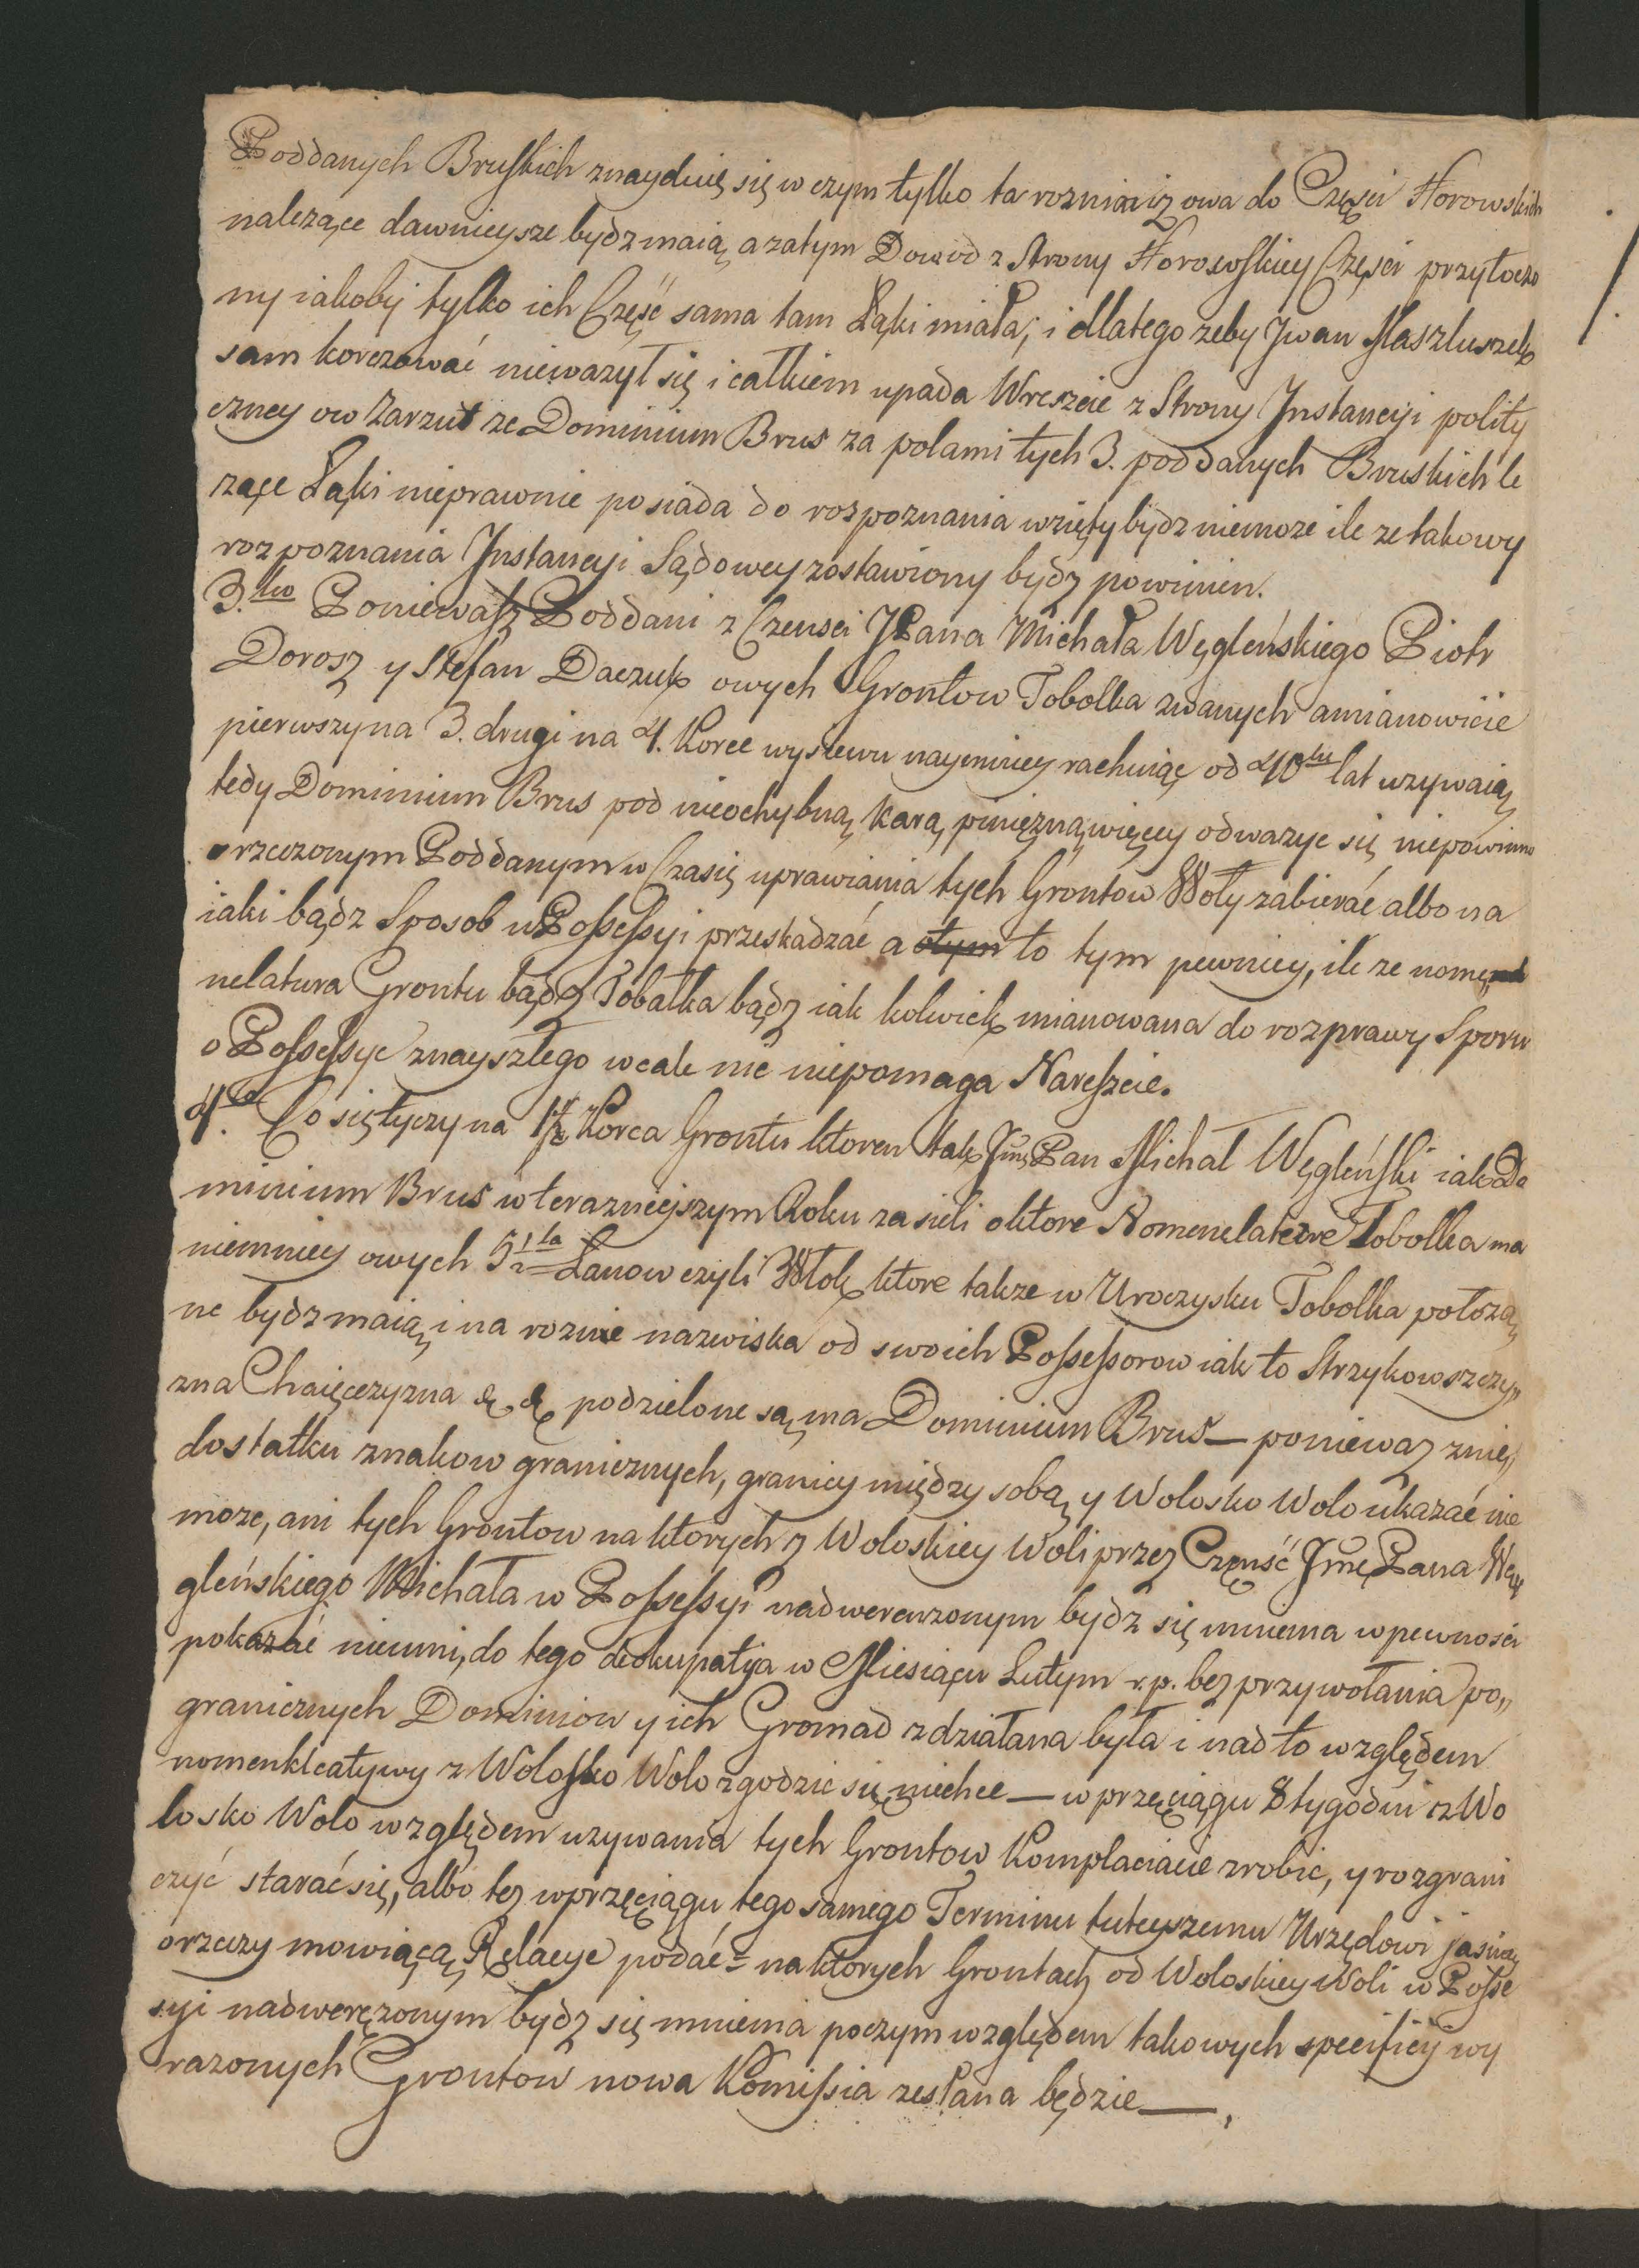 Poddanych Bruskich znayduię się w czym tylko ta roznica iż owa do Częsci Horowskich
nalezące dawnieysze bydz maią a zatym Dowod z Strony Horowskiey Częsci przytoczo
ny iakoby tylko ich Część sama tam Łąki miała; i dlatego zeby Jwan Maszluszek
sam korczować niewazył się i całkiem upada Wreszcie z Strony Jnstancyi polity
czney ow Zarzut ze Dominium Brus za polami tych 3. poddanych Bruskich le
zące Łąki nieprawnie posiada do rospoznania wzięty bydz niemoze ile ze takowy
rozpoznania Jnstancyi Sądowey zostawiony bydz powinien.
3.tio Poniewasz Poddani z Czensci JPana Michała Węgleńskiego Piotr
Dorosz y Stefan Daczuk owych Grontow Tobolka zwanych a mianowicie
pierwszy na 3. drugi na 4. Korce wysiewu naymniey rachuiąc od 40tu lat uzywaią
tedy Dominium Brus pod nieochybną karą pinięzną więcey odwazyc się niepowinno
rzeczonym Poddanym w Czasie uprawiania tych Grontow Woły zabierać albo na
iaki bądz Sposob w Possessyi przeskadzać a to tym pewniey, ile ze nomęn
nelatura Grontu bądz Tobałka bądz iak kolwiek mianowana do rozprawy Sporu
o Possessye znayszłego wcale nic niepomaga Nareszcie.
4.to Co się tyczy na 1½ Korca Grontu ktoren tak Jmę Pan Michał Węgleński iak Do
minium Brus w terazniejszym Roku zasieli o ktore Nomenclature Tobolka ma
niemniey owych 5½ta Łanow czyli Włok ktore takze w Uroczysku Tobolka położo
ne bydz maią i na rozne nazwiska od swoich Possessorow iak to Strzykowszczy„
zna Chaięczyzna & & podzielone są ma Dominium Brus — poniewaz z nie„
dostatku znakow granicznych, granicy między sobą y Wolosko Wolo ukazać nie
moze, ani tych Grontow na ktorych z Woloskiey Woli przez Częnść Jmę Pana Węn
gleńskiego Michała w Possessyi nadwerenzonym bydz się mniema w pewnosci
pokazać nieumi, do tego deokupatya w Miesiącu Lutym r. p. bez przywołania po„
granicznych Dominiow y ich Gromad zdziałana była i nadto względem
nomenkleatywy z Wolosko Wolo zgodzic się niechce — w przeciągu 8 tygodni z Wo
losko Wolo względem uzywania tych Grontow Komplaciacie zrobic, y rozgrani
czyć starać się, albo tez w przęciągu tego samego Terminu tuteyszemu Urzędowi jasną
o rzeczy mowiącą Relacye podać = na ktorych Grontach od Woloskiey Woli w Posse
syi nadwerężonym bydz się mniema poczym względem takowych specificy wy
razonych Grontow nowa Komissia zesłana będzie —